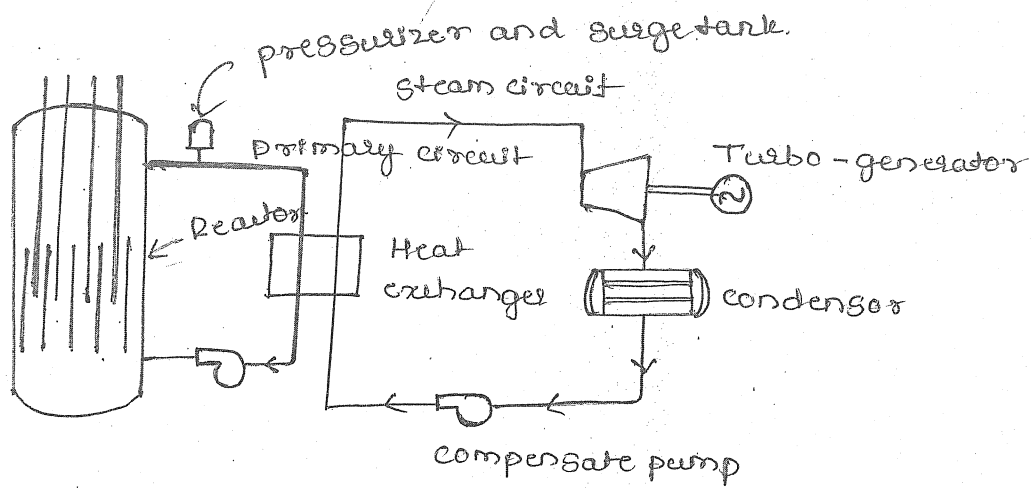 pressurizer and surge tank.
steam circuit
primary circuit
Turbo-generator
Reactor
Heat
exchanger
condensor
compensate pump